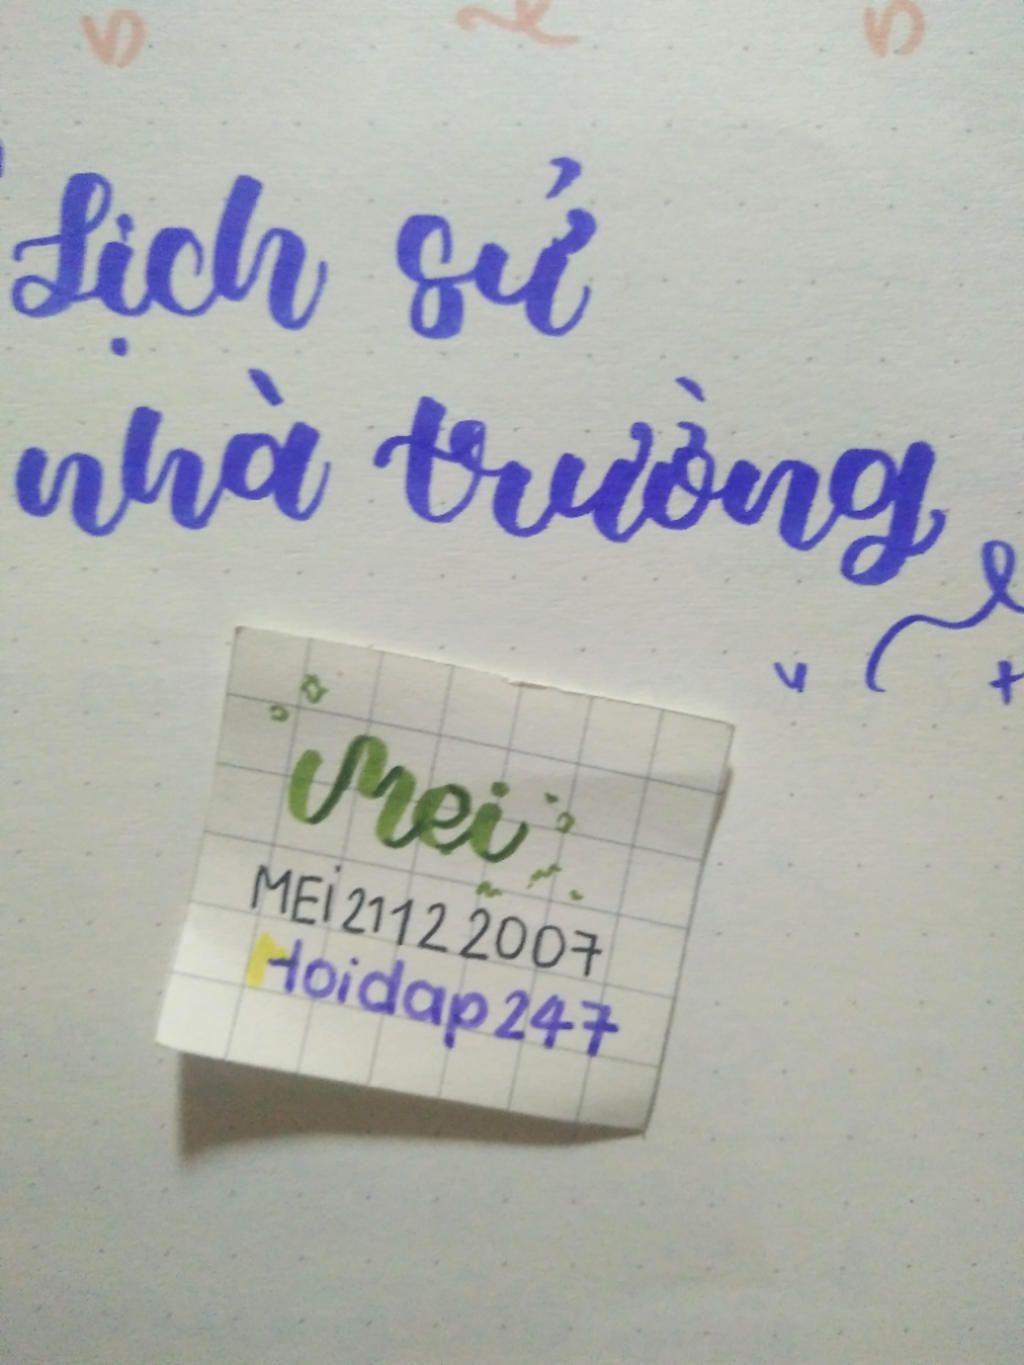 Lịch sử
nhà trường
Mei
MEi 2112 2007
Hoidap247